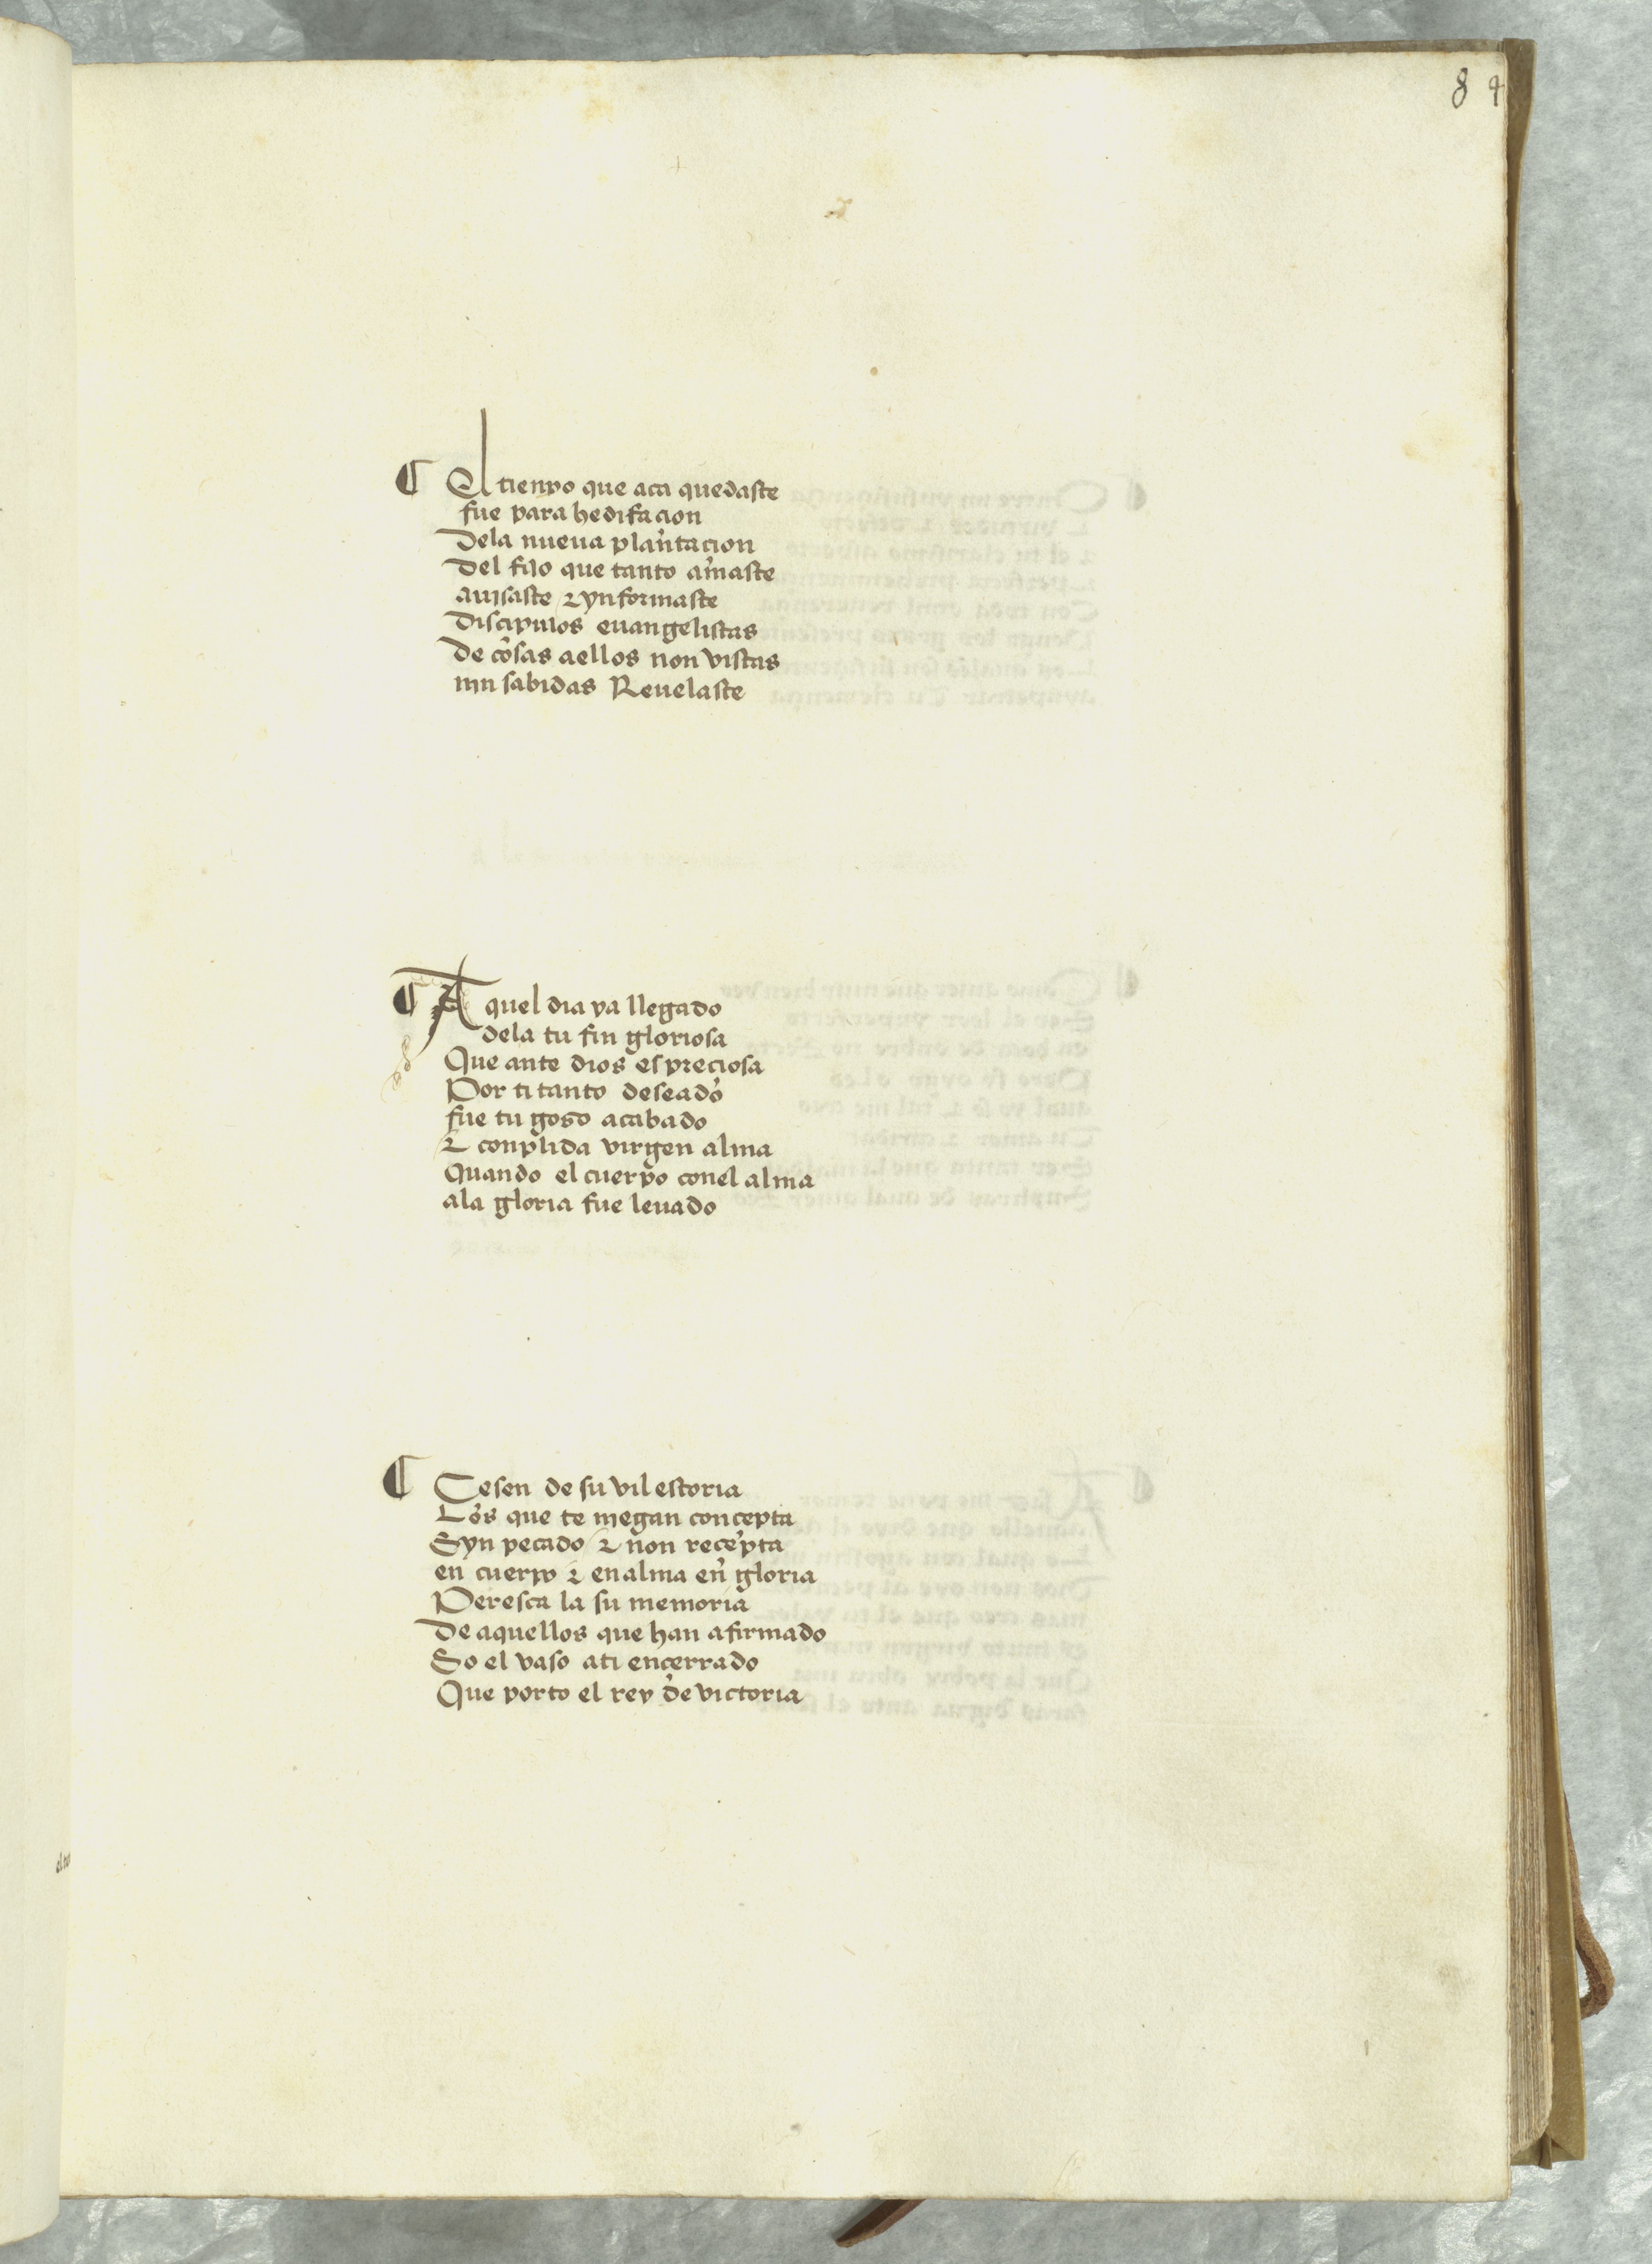 84
¶ El tienpo que aca quedaste
fue para hedifacion
Dela nueua plantacion
Del fijo que tanto amaste
auisaste ⁊ ynformaste
Discipulos euangelistas
De cosas aellos non vistas
njn sabidas Reuelaste
¶ A quel dia ya llegado
dela tu fin gloriosa
Que ante dios es preciosa
Por ti tanto deseado
fue tu gozo acabado
⁊ conplida virgen alma
Quando el cuerpo conel alma
ala gloria fue leuado
¶ Cesen de su vil estoria
Los que te niegan concepta
Syn pecado ⁊ non recepta
en cuerpo ⁊ en alma en gloria
Peresca la su memoria
De aquellos que han afirmado
So el vaso ati encerrado
Que porto el rey de victoria